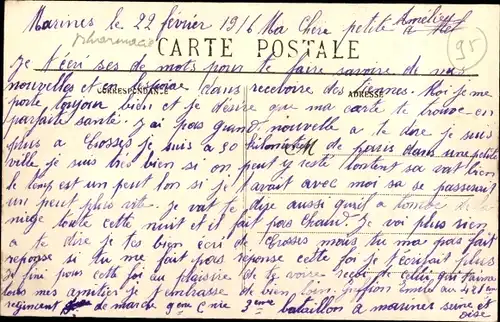 Marines le 22 février 1916 Ma Chère petite Amélie
95
CARTE POSTALE
Je t'écri ses de mots pour te faire savoire de mes
nouvelles et en dans recevoire des tiennes. Moi je me
CORRESPONDANCE
ADRESSE
porte toujour bien et je désire que ma carte te trouve en
parfaite santé. J'ai pas grand nouvelle a te dire je suis
plus a je suis a 90 kilometre de paris dans une petite
ville je suis très bien si on peut y reste lontent sa vat bien
le temp est un peut lon si je t'avait avec moi sa se passerait
un peut plus vite. Je vat te dise aussi quril a tombe de la
niege toute cette nuit et il fait pas chaud. Je voi plus rien
a te dire je tes bien écri de chosses mais tu ma pas fait
réponse si tu me fait pas réponse cette foi je t'ecrirait plus
Je fini pour cette foi au plaisire de te voire reçoi de celui qui t'aime
tous mes amitier je t'embrasse de bien loin. Emile au 428em
regiment de marche 9em Cnie 3eme bataillon a marines seine et
oise